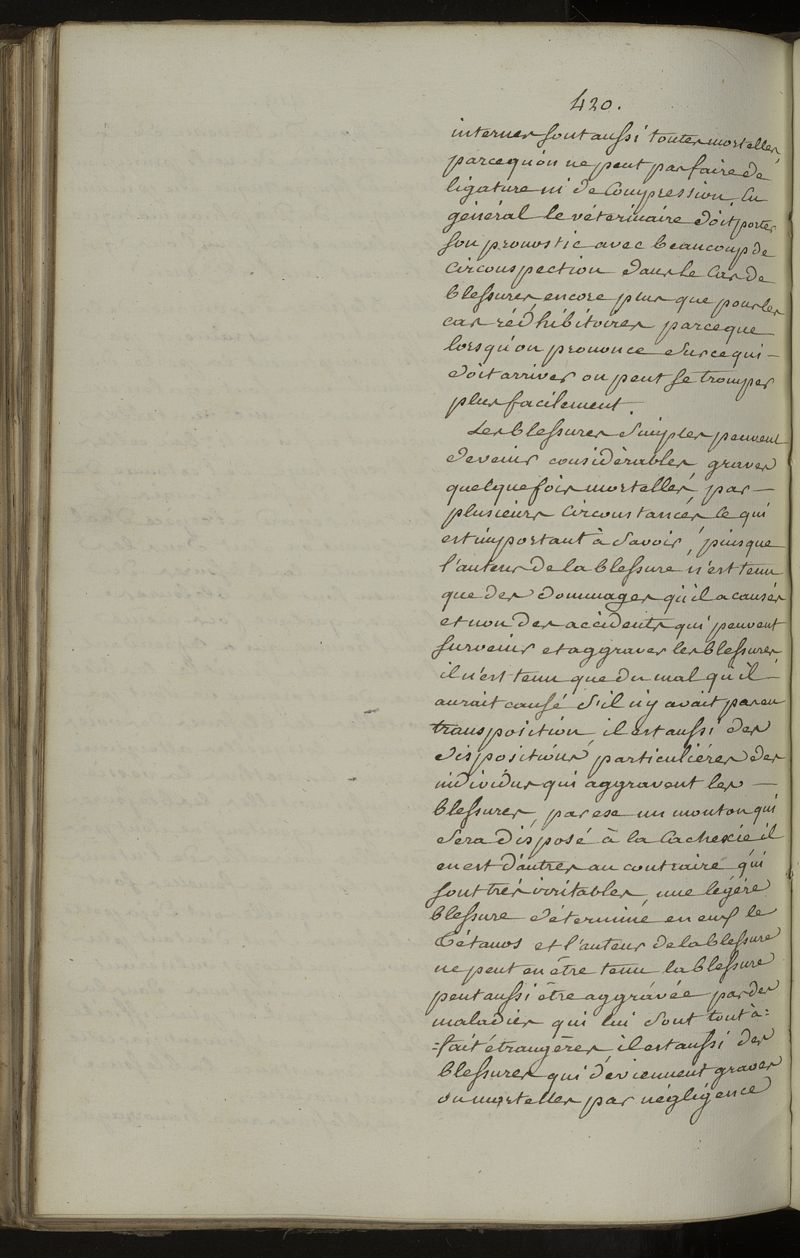 420.
internes sont aussi toutes mortelles,
parcequ'on ne peut pas faire de
ligature ni de Compression. En
général le véterinaire doit porter
son pronostic avec beaucoup de
Circonspection dans le Cas de
blessures, encore plus que pour les
cas rédhibitoires parceque
lorsqu'on prononce sur ce qui –
doit arriver on peut se tromper
plus facilement.
Les blessures simples peuvent
devenir considèrables, graves
quelquefois mortelles, par –
plusieurs Circonstances, ce qui
est important à savoir, puisque
l'auteur de la blessure n'est tenu
que des dommages qu'il a causés
et non des accidents qui peuvent
survenir et aggraver les blessures,
il n'est tenu que du mal qu'il –
aurait causé s'il n'y avait pas eu
transposition, il est aussi des
dispositions particulières des
individus qui aggravent les –
blessures, par ex un mouton qui
sera disposé à la Cachexie il
en est d'autres au contraire qui
sont très irritables, une légère
blessure détermine en eux le
Tétanos et l'auteur de la blessure
ne peut en être tenu la blessure
peut aussi être aggravée par des
maladies qui lui sont tout à=
=fait étrangères, il est aussi des
blessures qui deviennent graves
ou mortelles par négligence